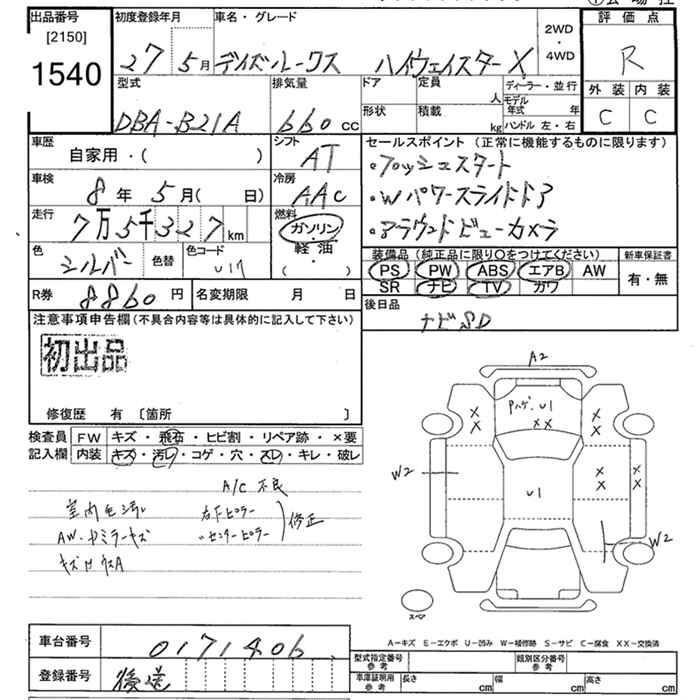 出品番号
[2150]
1540
初度登録年月
27 5月
車名・グレード
デイズルークス ハイウェイスターX
2WD
・
4WD
評価点
R
外装 内装
C C
型式
DBA-B21A
排気量
660cc
ドア
定員
人
ディーラー・並行
モデル年式 年
形状
積載
kg
ハンドル 左・右
車歴
自家用・( )
シフト
AT
セールスポイント(正常に機能するものに限ります)
・プッシュスタート
・Wパワースライドドア
・アラウンドビューカメラ
車検
8年 5月( 日)
冷房
AAC
走行
7万5千327km
燃料
ガソリン
・
軽油
( )
色
シルバー
色替
色コード
装備品(純正品に限り○をつけてください)
PS PW ABS エアB AW
SR ナビ TV カワ
新車保証書
有・無
R券
8860円
名変期限 月 日
後日品
ナビSD
注意事項申告欄(不具合内容等は具体的に記入して下さい)
初出品
修復歴 有 〔箇所 〕
検査員記入欄
FW キズ・飛石・ヒビ割・リペア跡・×要
内装 キズ・汚レ・コゲ・穴・スレ・キレ・破レ
A/C不良
室内毛汚レ
AW・ドミラーキズ
右Fピラー
〃センターピラー
修正
A2
ハゲ・U1
××
×
×
×
×
W2
U1
×
×
×
×
W2
スペア
A-キズ E-エクボ U-凹み W-補修跡 S-サビ C-腐食 XX-交換済
車台番号
0171406
登録番号
後送
型式指定番号
参考
類別区分番号
参考
車庫証明用
参考
長さ cm 幅 cm 高さ cm